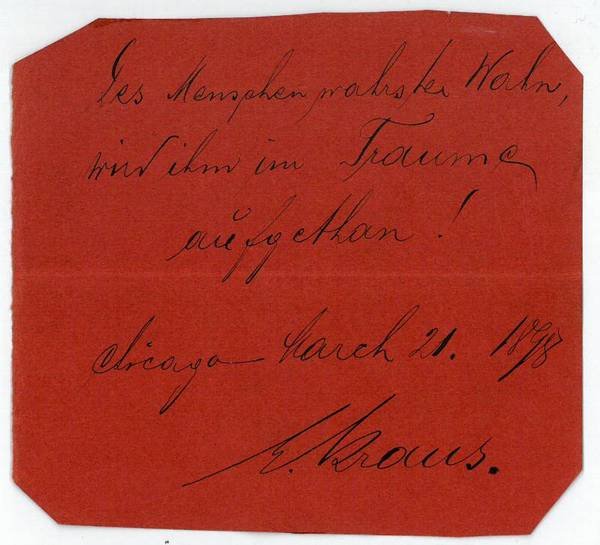 Des Menschen wahrster Wahn,
wird ihm im Traume
aufgethan!
Chicago March 21. 1898
E. Kraus.